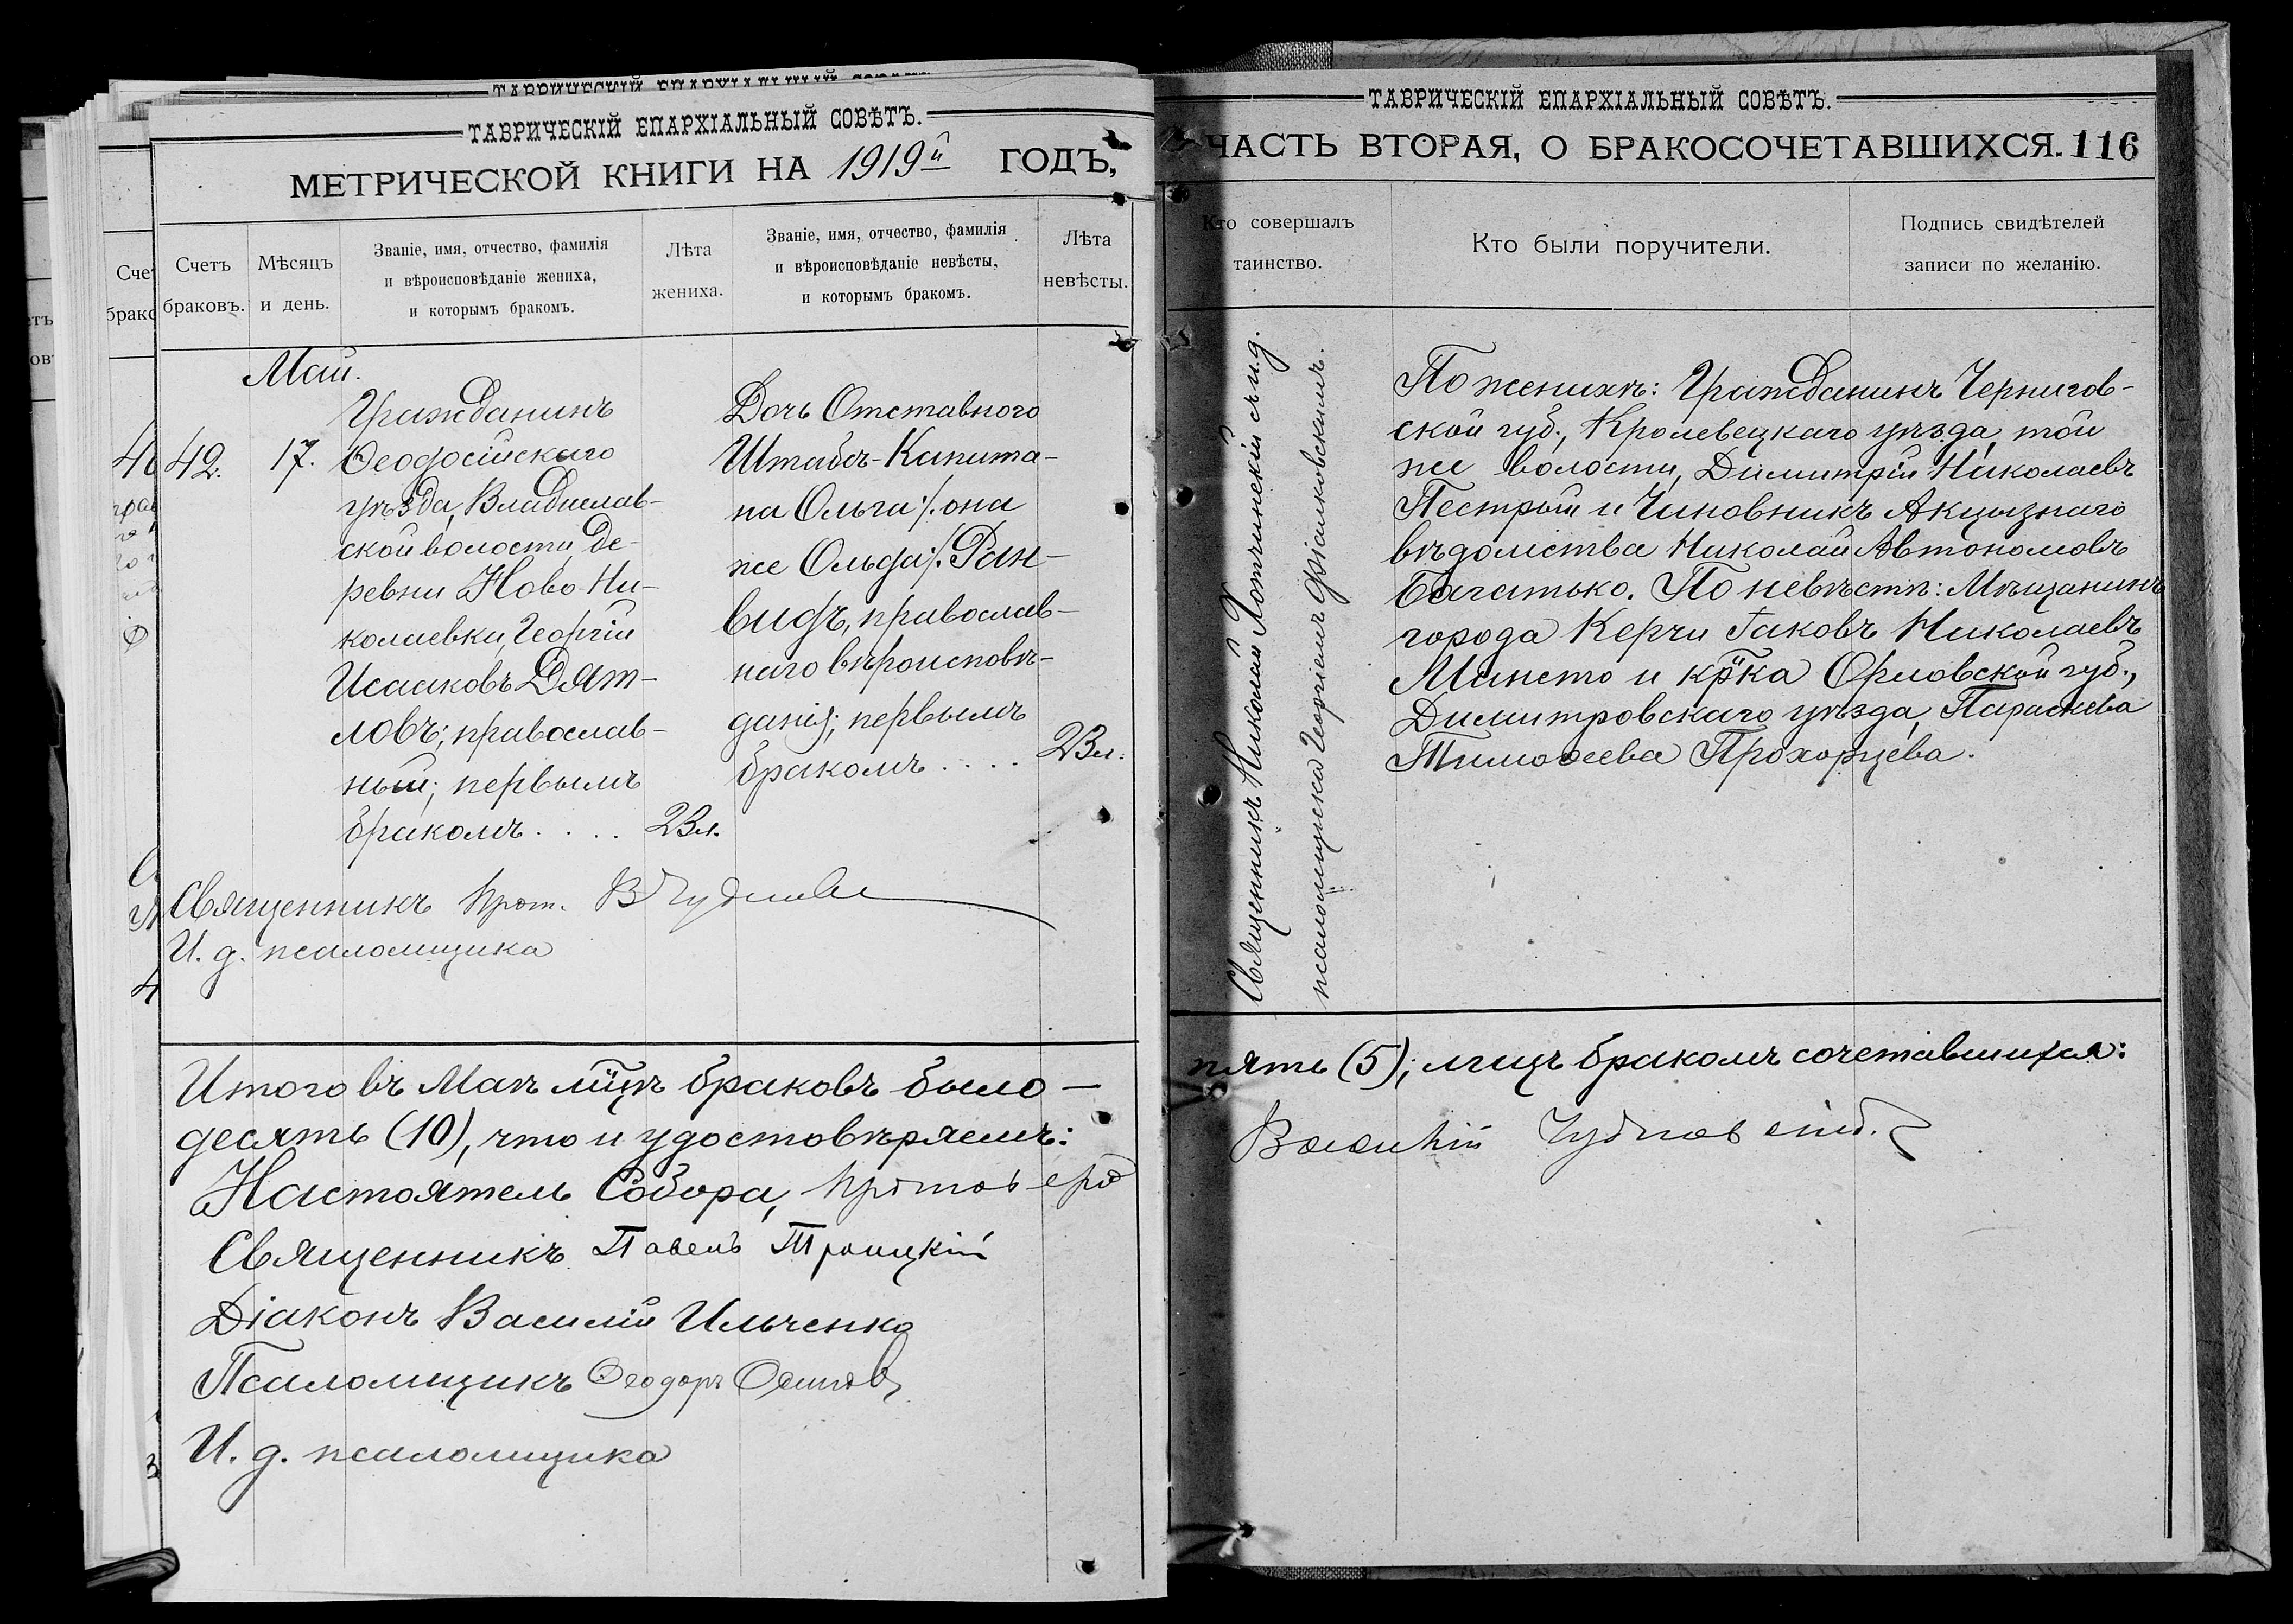 ТАВРИЧЕСКІЙ ЕПАРХІАЛЬНЫЙ СОВѢТЪ.
МЕТРИЧЕСКОЙ КНИГИ НА 1919й ГОДЪ,
Счетъ браковъ.
Мѣсяцъ и день.
Званіе, имя, отчество, фамилія
и вѣроисповѣданіе жениха,
и которымъ бракомъ.
Лѣта
жениха.
Званіе, имя, отчество, фамилія
и вѣроисповѣданіе невѣсты,
и которымъ бракомъ.
Лѣта
невѣсты.
Май.
42. 17.
Гражданинъ
Ѳеодосійскаго
уѣзда, Владислав-
ской волости, де-
ревни Ново-Ни-
колаевки, Георгій
Исааковъ Дят-
ловъ; православ-
ный; первымъ
бракомъ . . . . 23 л.
Дочь Отставного
Штабсъ-Капита-
на Ольга /. она
же Ольда ./. Ран-
вифъ, православ-
наго вѣроисповѣ-
данія; первымъ
бракомъ . . . . 23 л.
Священникъ прот. В Чудновс
И. д. псаломщика
Итого въ Маѣ мѣцѣ браковъ было —
десять (10), что и удостовѣряемъ:
Настоятель Собора, протоіерей
Священникъ Павелъ Троицкій
Діаконъ Василій Ильченко
Псаломщикъ Ѳеодоръ Осиповъ
И. д. псаломщика
ТАВРИЧЕСКІЙ ЕПАРХІАЛЬНЫЙ СОВѢТЪ.
ЧАСТЬ ВТОРАЯ, О БРАКОСОЧЕТАВШИХСЯ. 116
Кто совершалъ
таинство.
Кто были поручители.
Подпись свидѣтелей
записи по желанію.
Священникъ Николай съ и. д.
псаломщика Георгіемъ Фіалковскимъ.
По женихѣ: Гражданинъ Чернигов-
ской губ., Кролевецкаго уѣзда, той
же волости, Димитрій Николаевъ
Пестрый и Чиновникъ Акцизнаго
вѣдомства Николай Автономовъ
Багатько. По невѣстѣ: Мѣщанинъ
города Керчи Іаковъ Николаевъ
Мансто и кр̈ка Орловской губ.,
Димитровскаго уѣзда, Параскева
Тимоѳеева Прохорцева.
пять (5); лицъ бракомъ сочетавшихся:
Василій